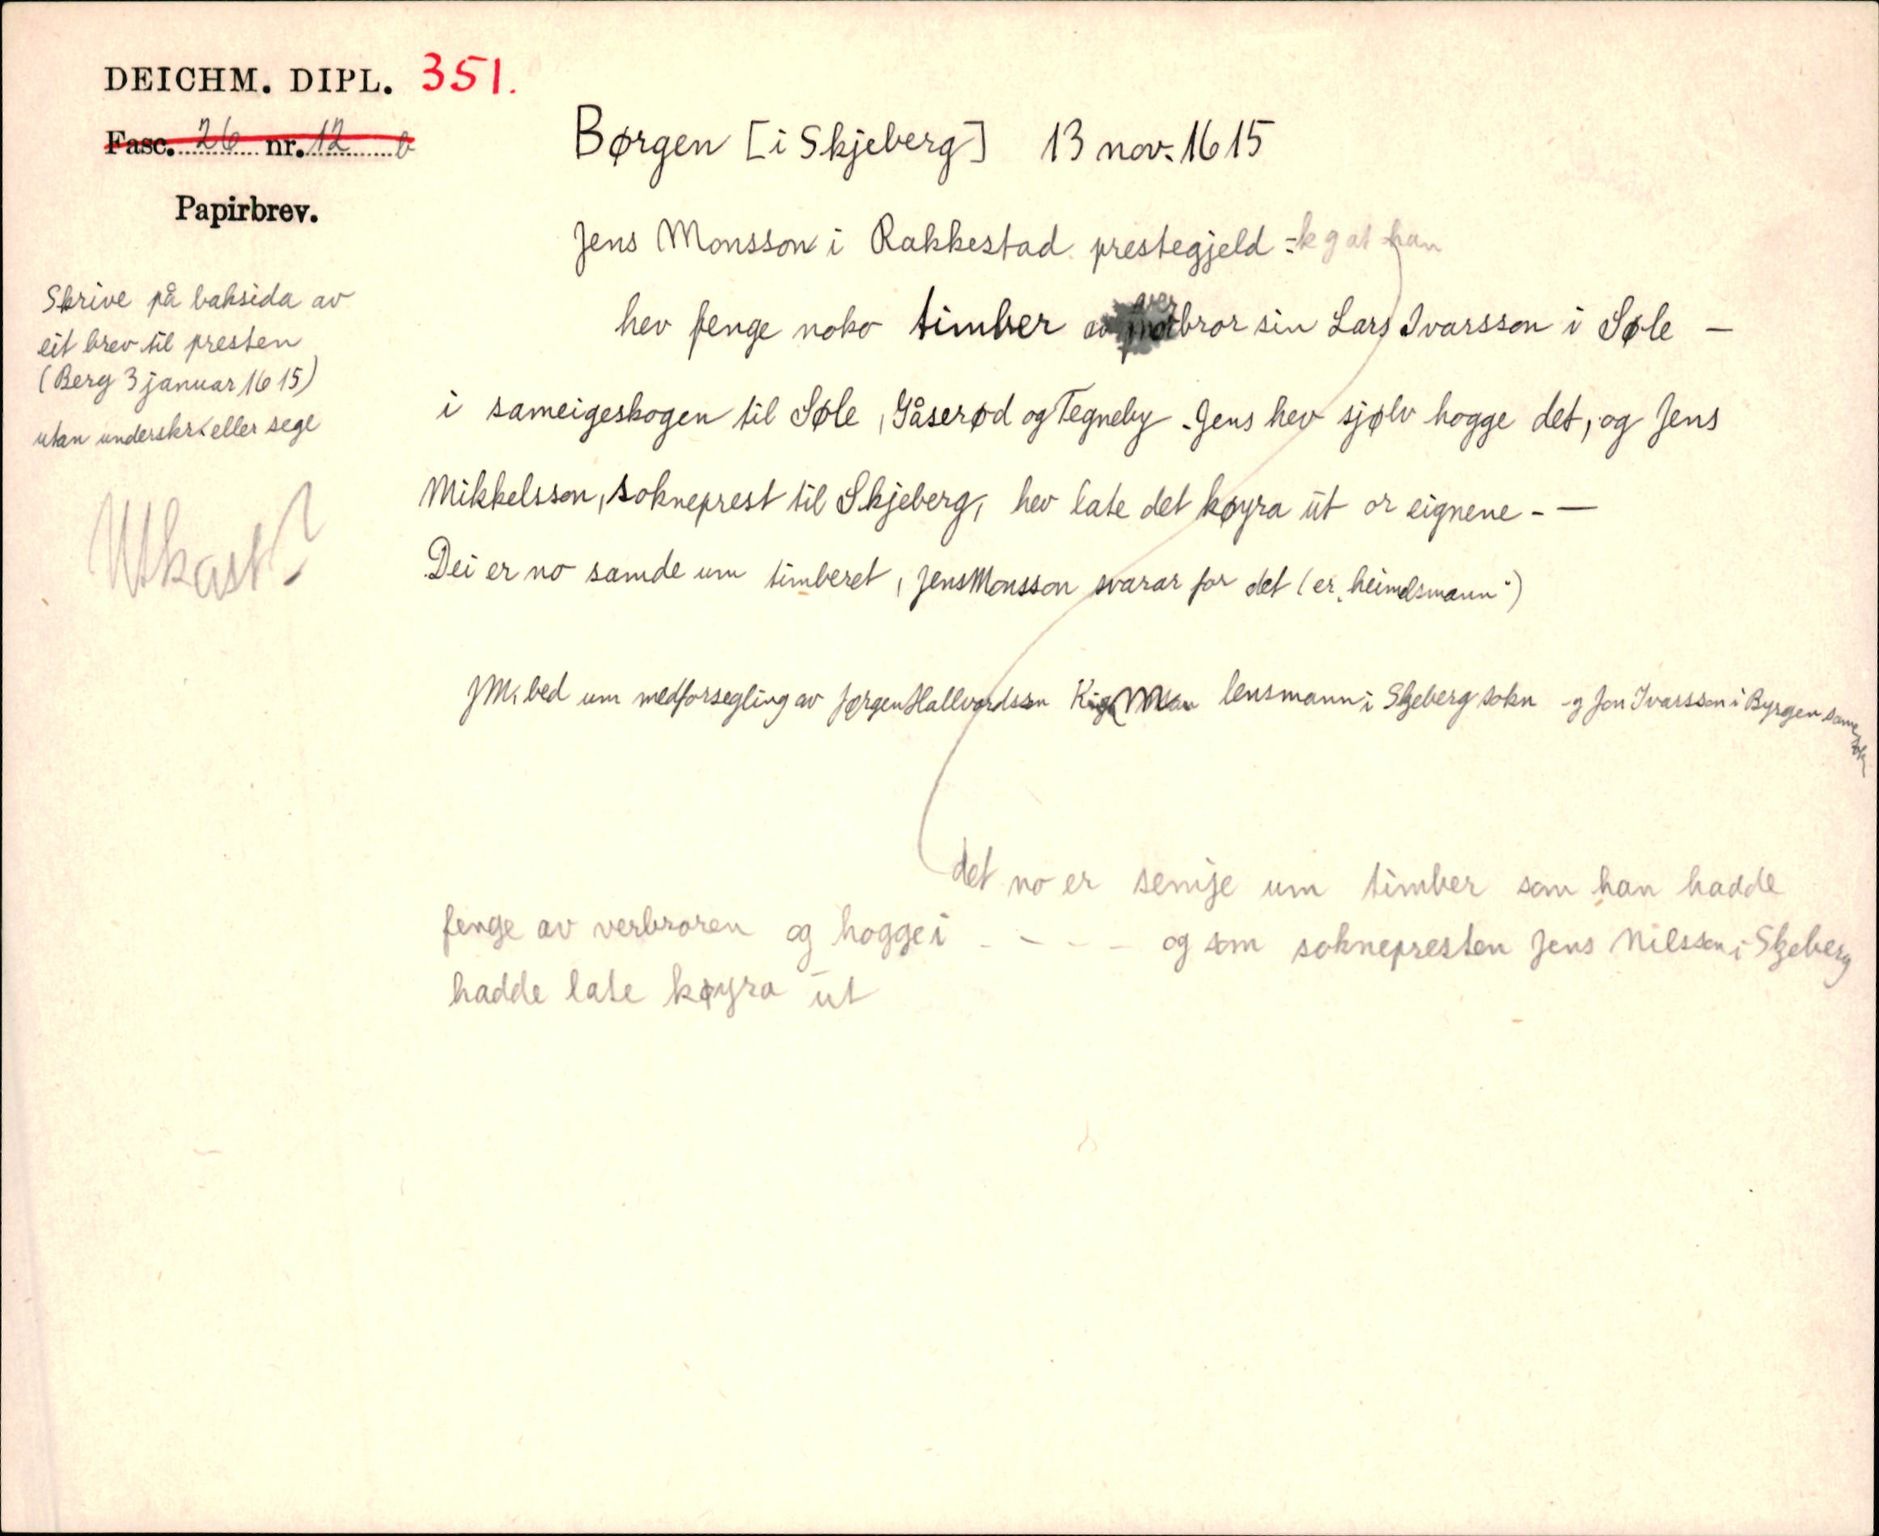 DEICHM. DIPL. 351.
Fasc. 26 nr. 12 b
Papirbrev.
Børgen [i Skjeberg] 13 nov. 1615
Skrive på baksida av
eit brev til presten
(Berg 3 januar 1615)
utan underskr. eller segl
Utkast?
Jens Monsson i Rakkestad prestegjeld = k g at han
hev fenge noko timber av verbror sin Lars Ivarsson i Søle —
i sameigeskogen til Søle, Gåserød og Tegneby. Jens hev sjølv hogge det, og Jens
Mikkelsson, sokneprest til Skjeberg, hev late det køyra ut or eignene - —
Dei er no samde um timberet, Jens Monsson svarar for det (er "heimdsmann")
JM. bed um medforsegling av Jørgen Hallvardssn lensmann i Skjeberg sokn og Jon Ivarsson i Byrgen same sokn
det no er semje um timber som han hadde
fenge av verbroren og hogge i - - - - og som soknepresten Jens Nilsson i Skjeberg
hadde late køyra ut